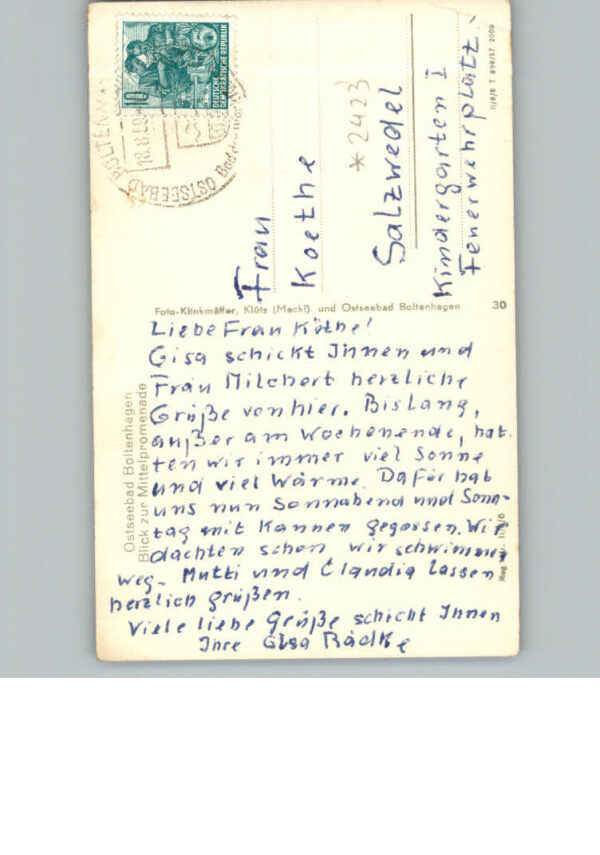 10
DEUTSCHE
DEMOKRATISCHE REPUBLIK
OSTSEEBAD
18.8.58
*2423
Frau
Koethe
Salzwedel
Kindergarten I
Feuerwehrplatz.
Foto-Klinkmüller, Klütz (Meckl) und Ostseebad Boltenhagen
30
Ostseebad Boltenhagen
Blick zur Mittelpromenade
Liebe Frau Köthe!
Gisa schickt Ihnen und
Frau Milchert herzliche
Grüße von hier. Bislang,
außer am Wochenende, hat-
ten wir immer viel Sonne
und viel Wärme. Dafür hab
uns nun Sonnabend und Sonn-
tag mit Kannen gegossen. Wir
dachten schon wir schwimmen
weg. Mutti und Claudia lassen
herzlich grüßen.
Viele liebe Grüße schickt Ihnen
Ihre Gisa Rädke